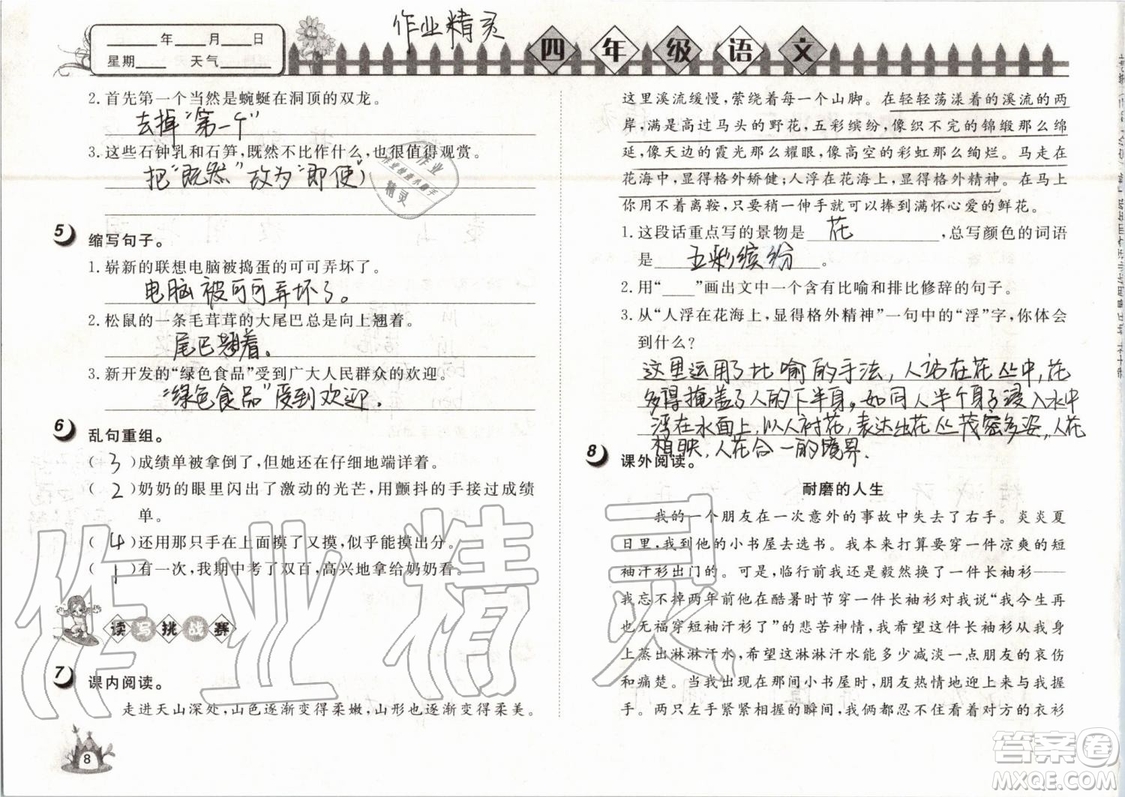 ____年____月____日
星期____ 天气____
作业精灵
四年级语文
2.首先第一个当然是蜿蜒在洞顶的双龙。
去掉“第一个”
3.这些石钟乳和石笋,既然不比作什么,也很值得观赏。
把“既然”改为“即使”
5 缩写句子。
1.崭新的联想电脑被捣蛋的可可弄坏了。
电脑被可可弄坏了。
2.松鼠的一条毛茸茸的大尾巴总是向上翘着。
尾巴翘着。
3.新开发的“绿色食品”受到广大人民群众的欢迎。
“绿色食品”受到欢迎。
6 乱句重组。
( 3 )成绩单被拿倒了,但她还在仔细地端详着。
( 2 )奶奶的眼里闪出了激动的光芒,用颤抖的手接过成绩
单。
( 4 )还用那只手在上面摸了又摸,似乎能摸出分。
( 1 )有一次,我期中考了双百,高兴地拿给奶奶看。
读写挑战赛
7 课内阅读。
走进天山深处,山色逐渐变得柔嫩,山形也逐渐变得柔美。
8
这里溪流缓慢,萦绕着每一个山脚。在轻轻荡漾着的溪流的两
岸,满是高过马头的野花,五彩缤纷,像织不完的锦缎那么绵
延,像天边的霞光那么耀眼,像高空的彩虹那么绚烂。马走在
花海中,显得格外矫健;人浮在花海上,显得格外精神。在马上
你用不着离鞍,只要稍一伸手就可以捧到满怀心爱的鲜花。
1.这段话重点写的景物是 花 ,总写颜色的词语
是 五彩缤纷 。
2.用“____”画出文中一个含有比喻和排比修辞的句子。
3.从“人浮在花海上,显得格外精神”一句中的“浮”字,你体会
到什么?
这里运用了比喻的手法,人站在花丛中,花
多得掩盖了人的下半身,如同人半个身子浸入水中
浮在水面上,以人衬花,表达出花茂密多姿,人花
相映,人花合一的境界.
8 课外阅读。
耐磨的人生
我的一个朋友在一次意外的事故中失去了右手。炎炎夏
日里,我到他的小书屋去选书。我本来打算穿一件凉爽的短
袖汗衫出门的。可是,临行前我还是毅然换了一件长袖衫——
我忘不掉两年前他在酷暑时节穿一件长袖衫对我说“我今生再
也无福穿短袖汗衫了”的悲苦神情,我希望他能从我的衣着上感
淋淋汗水,希望这淋淋汗水能多少减淡一些他的哀伤
和痛楚。当我出现在那间小书屋时,朋友热情地过来跟我握
手。两只左手紧紧相握的瞬间,我俩几乎同时看着对方的衣衫
作业精灵
答案圈
MXQE.COM